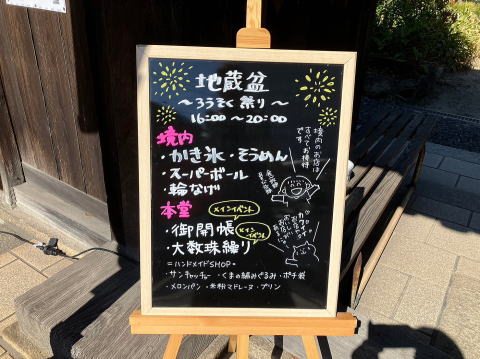 地蔵盆
～ろうそく祭り～
16:00～20:00
境内
・かき氷・そうめん
・スーパーボール
・輪なげ
境内のお店は
すべてお接待
です
本堂
メインイベント
・御開帳
メインイベント
・大数珠繰り
=ハンドメイドSHOP=
・サンキャッチャー・くまの編みぐるみ・ポチ袋
・メロンパン・米粉マドレーヌ・プリン